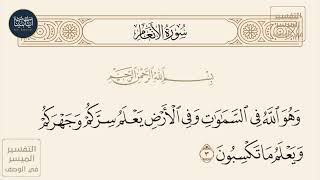 سُورَةُ الأَنْعَامِ
بِسْمِ اللَّهِ الرَّحْمَٰنِ الرَّحِيمِ
وَهُوَ اللَّهُ فِي السَّمَاوَاتِ وَفِي الْأَرْضِ يَعْلَمُ سِرَّكُمْ وَجَهْرَكُمْ
وَيَعْلَمُ مَا تَكْسِبُونَ ٣
التفسير
الميسر
في الوصف